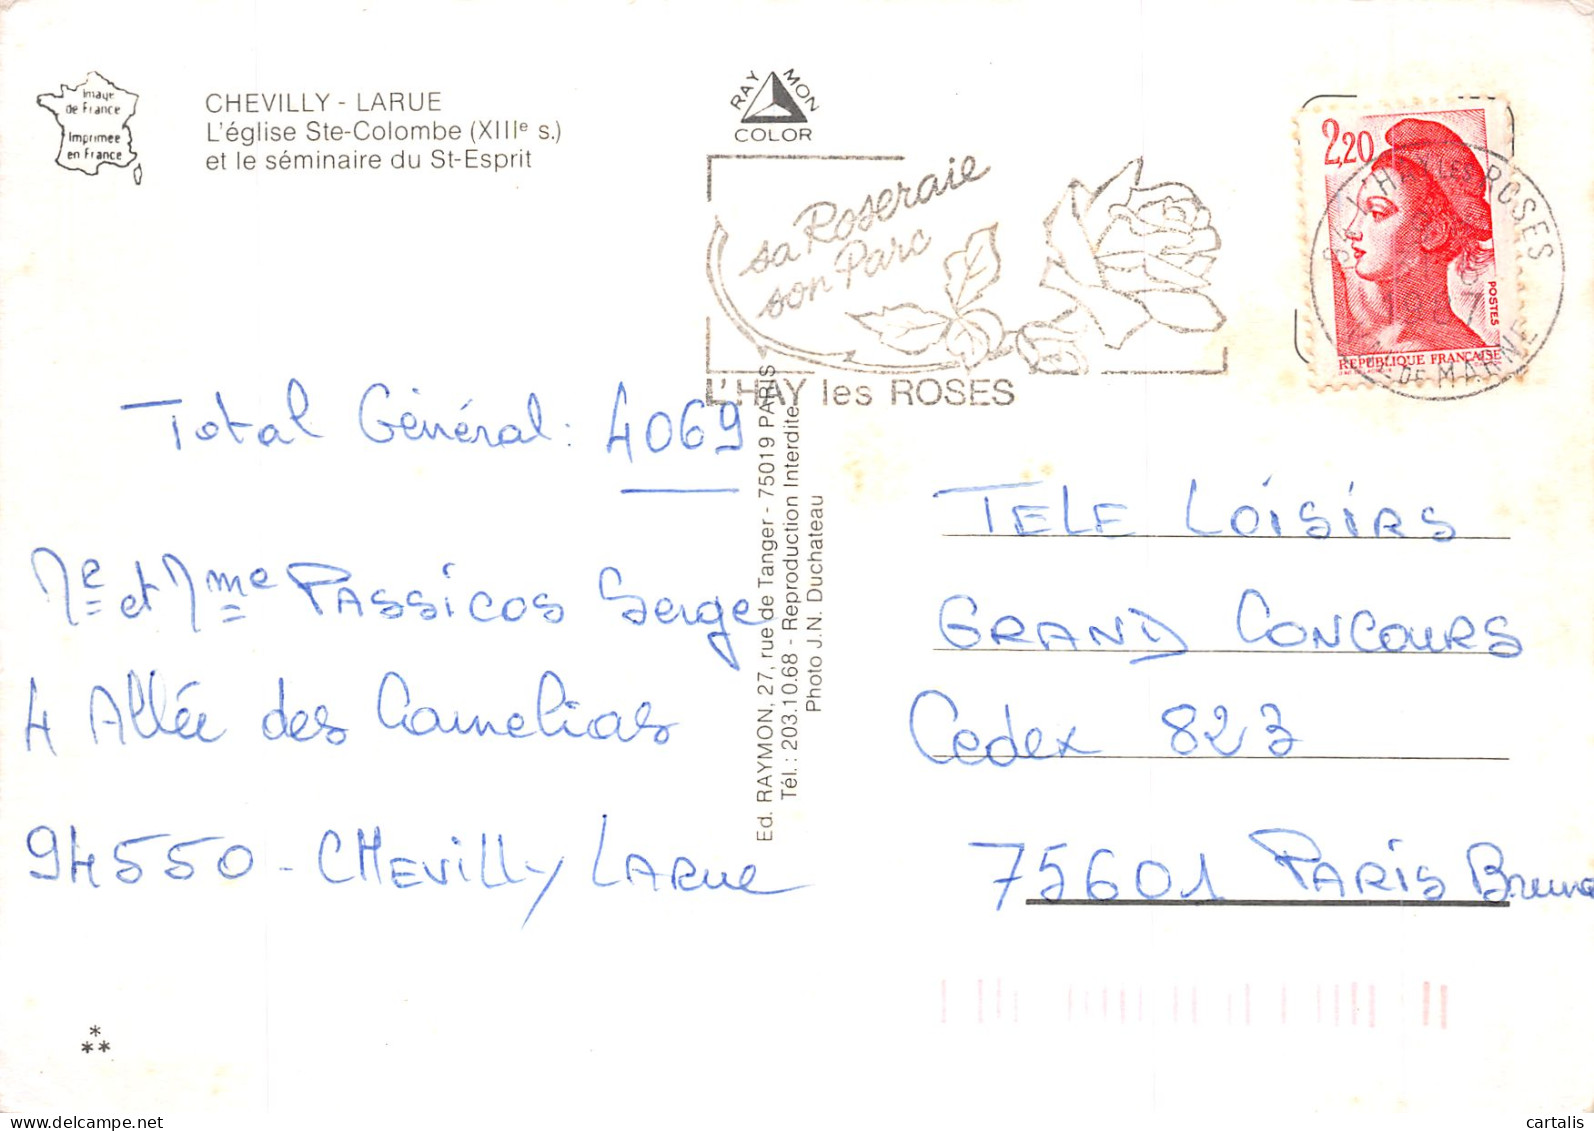 Image
de France
Imprimée
en France
CHEVILLY - LARUE
L'église Ste-Colombe (XIIIe s.)
et le séminaire du St-Esprit
RAYMON
COLOR
sa Roseraie
son Parc
L'HAY les ROSES
2,20
POSTES
REPUBLIQUE FRANÇAISE
94 L'HAY LES ROSES
DE MARNE
Total Général : 4069
Mr et Mme PASSICOS Serge
4 Allée des Camelias
94550 - CHEVILLY LARUE
Ed. RAYMON, 27, rue de Tanger - 75019 PARIS
Tél. : 203.10.68 - Reproduction Interdite
Photo J.N. Duchateau
TELE LOISIRS
GRAND CONCOURS
Cedex 823
75601 PARIS Brune
*
**
cartalis
www.delcampe.net